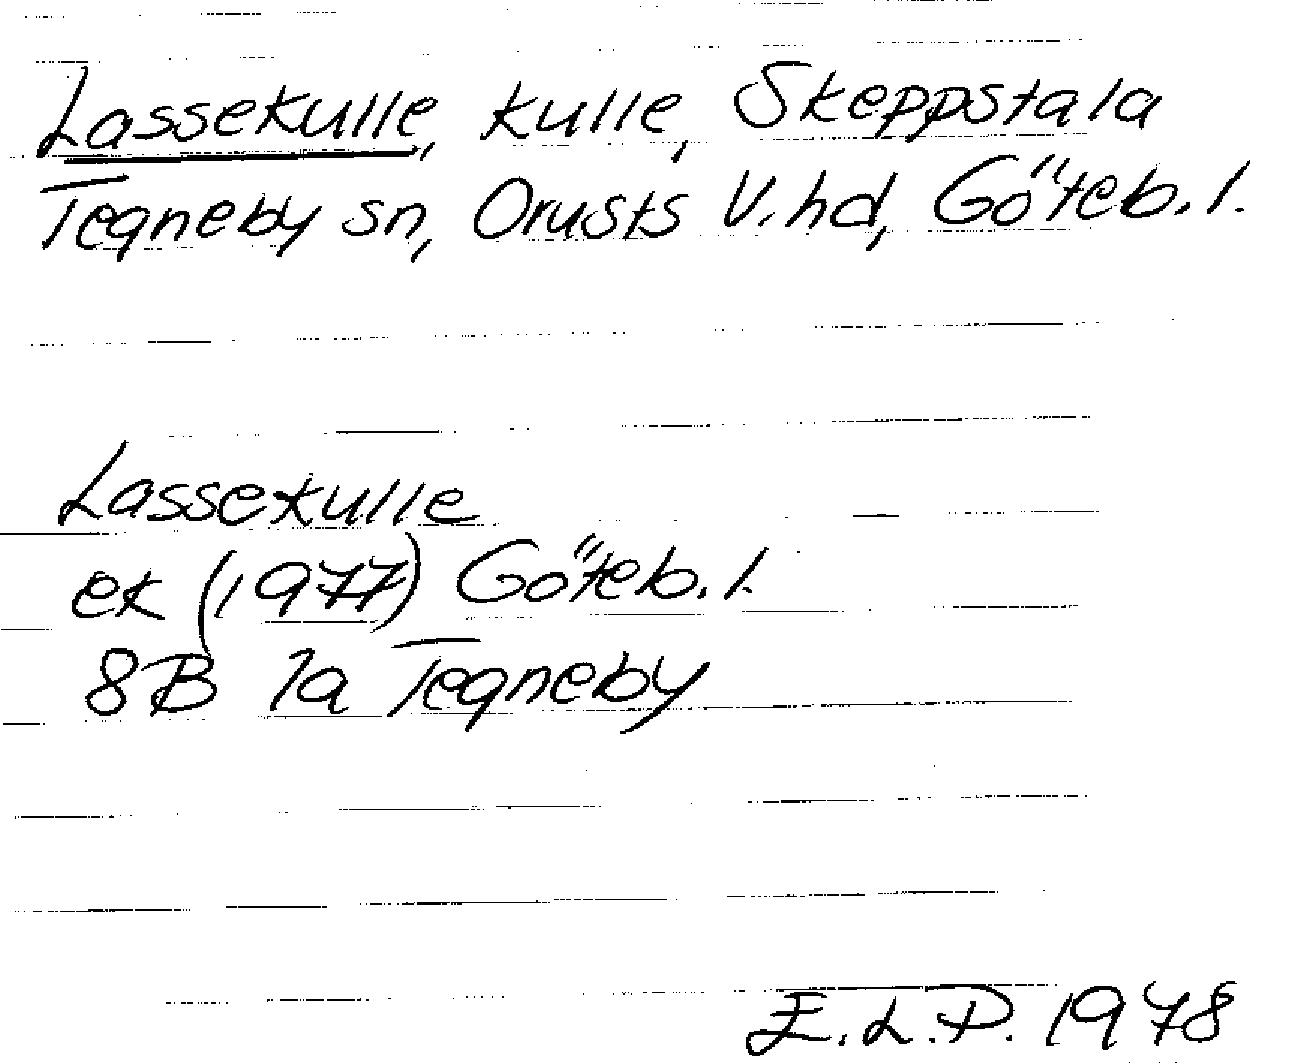 Lassekulle, kulle, Skeppstala
Tegneby sn, Orusts V. hd, Göteb. l.
Lassekulle
ek (1977) Göteb. l.
8B 1a Tegneby
E.L.P. 1978